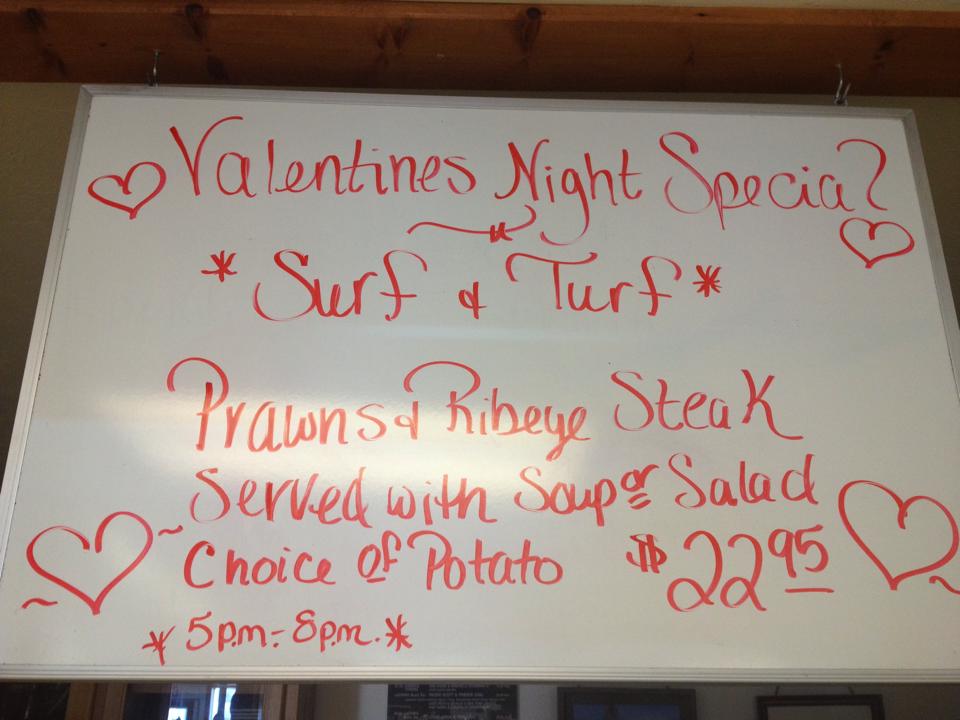 Valentines Night Special
* Surf & Turf *
Prawns & Ribeye Steak
Served with Soup or Salad
Choice of Potato $22.95
* 5p.m. - 8p.m. *